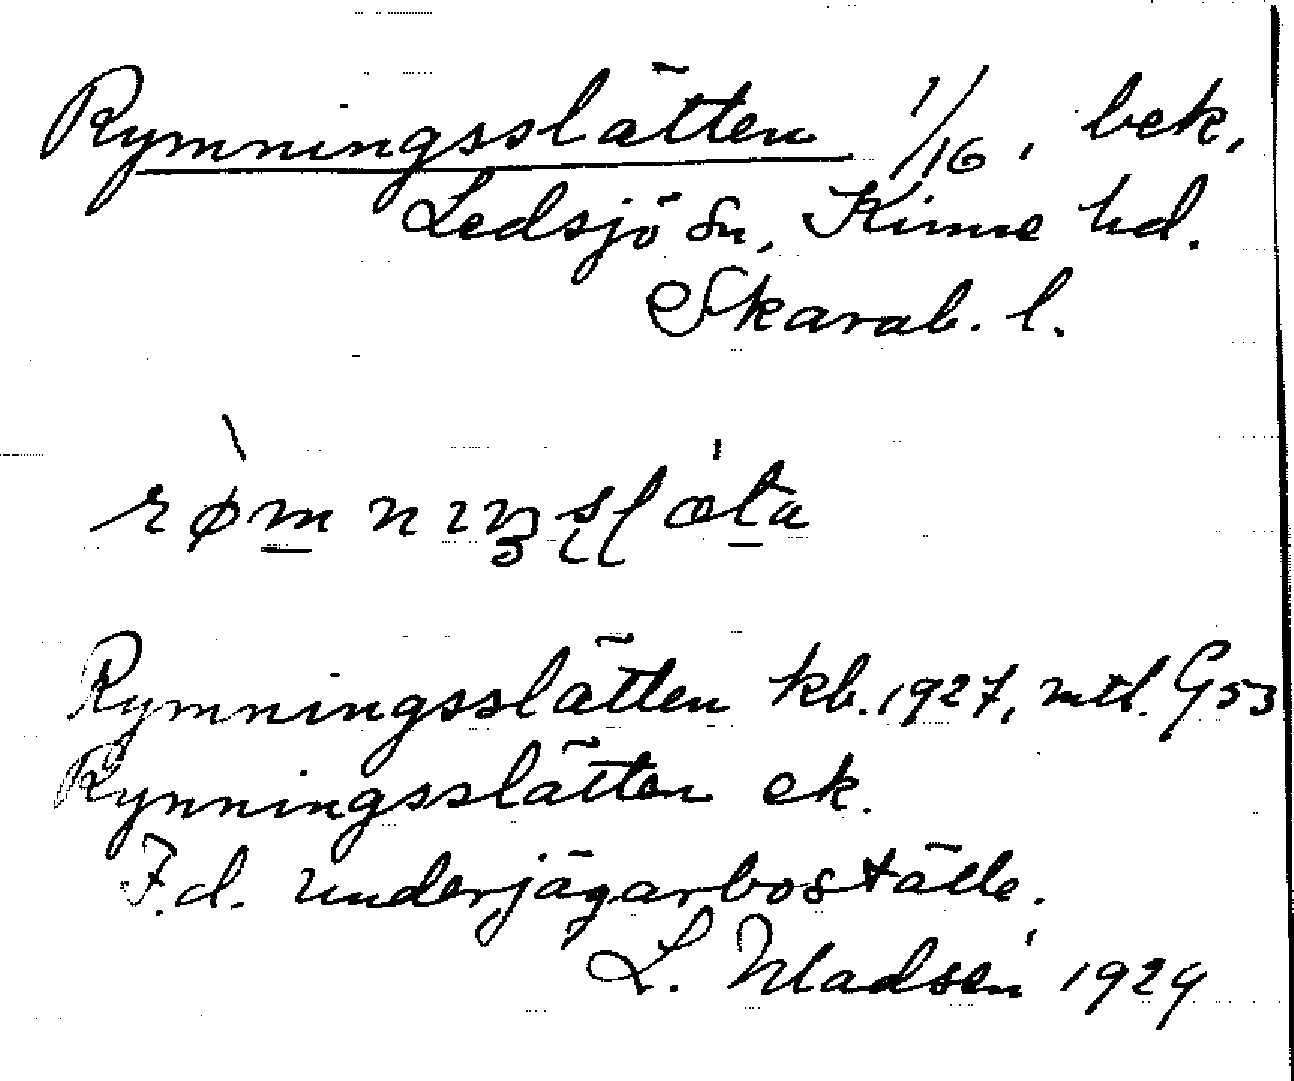 Rymningsslätten 1/16, bek,
Ledsjö sn, Kinne hd.
Skarab. l.
Rymningsslätten kb. 1927, mtl. G53
Rynningsslätten ek.
F.d. underjägarboställe.
L. 1929